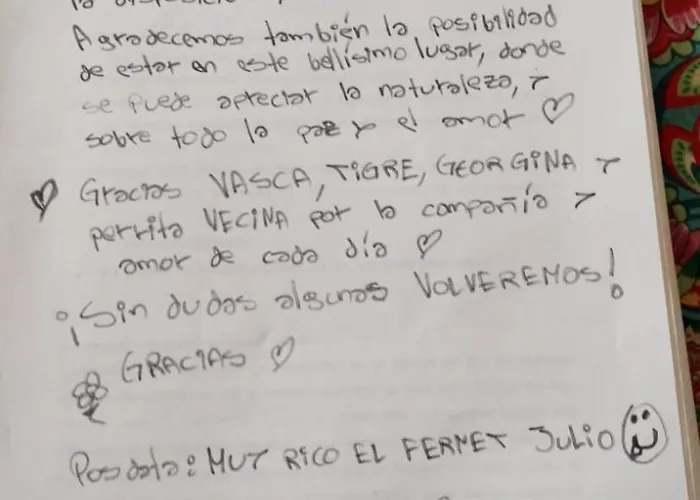 Agradecemos también la posibilidad
de estar en este bellísimo lugar, donde
se puede apreciar la naturaleza, y
sobre todo la paz y el amor ♡
♥ Gracias VASCA, TIGRE, GEORGINA Y
perrita VECINA por la compañía y
amor de cada día ♡
¡Sin dudas algunas VOLVEREMOS!
GRACIAS ♡
Posdata: MUY RICO EL FERNET JULIO